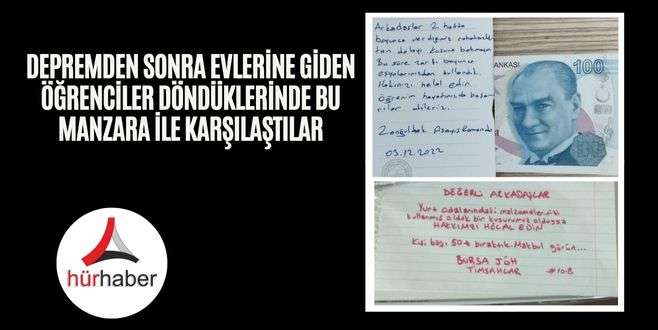 DEPREMDEN SONRA EVLERİNE GİDEN
ÖĞRENCİLER DÖNDÜKLERİNDE BU
MANZARA İLE KARŞILAŞTILAR
hürhaber
Arkadaşlar 2 hafta
boyunca verdiğimiz rahatsızlık
tan dolayı kusura bakmayın
Bu süre zarfı boyunca
eşyalarınızdan kullandık.
Hakkınızı helal edin
Öğrenim hayatınızda başarı
lar dileriz.
Zonguldak Asayiş Komando
03.12.2022
ANKASI
100
DEĞERLİ ARKADAŞLAR
Yurt odalarındaki malzemelerinizi
kullanmış olduk bir kusurumuz olduysa
HAKKINIZI HELAL EDİN
Kişi başı 50₺ bıraktık. Makbul görün...
BURSA JÖH
TİMSAHLAR